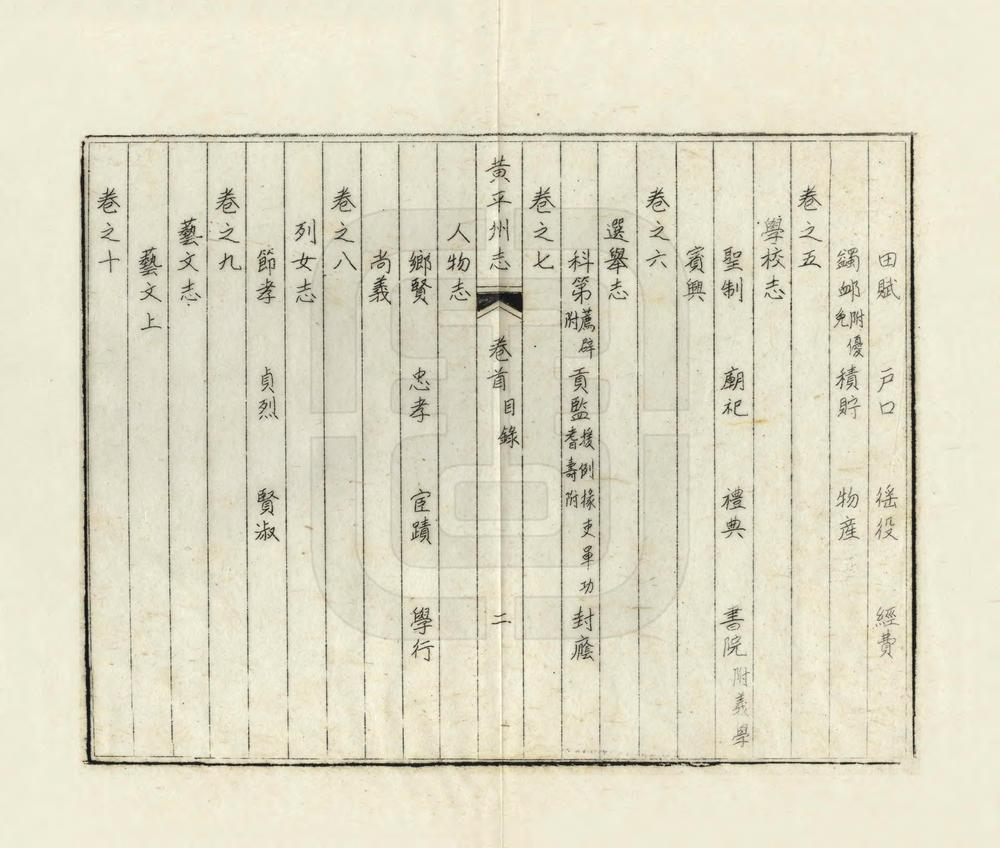 田賦　户口　徭役　經費
蠲邺附優免　積貯　物産
卷之五
學校志
聖制　廟祀　禮典　書院附義學
賓興
卷之六
選舉志
科第薦辟附　貢監援例掾吏軍功耆壽附　封廕
卷之七
黃平州志　卷首　目錄　二
人物志
鄉賢　忠孝　宦蹟　學行
尚義
卷之八
列女志
節孝　貞烈　賢淑
卷之九
藝文志
藝文上
卷之十